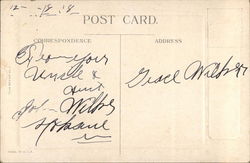 12-18-18
POST CARD.
CORRESPONDENCE
ADDRESS
From your
Uncle &
Aunt
Wilker
Spokane
Grace Walker